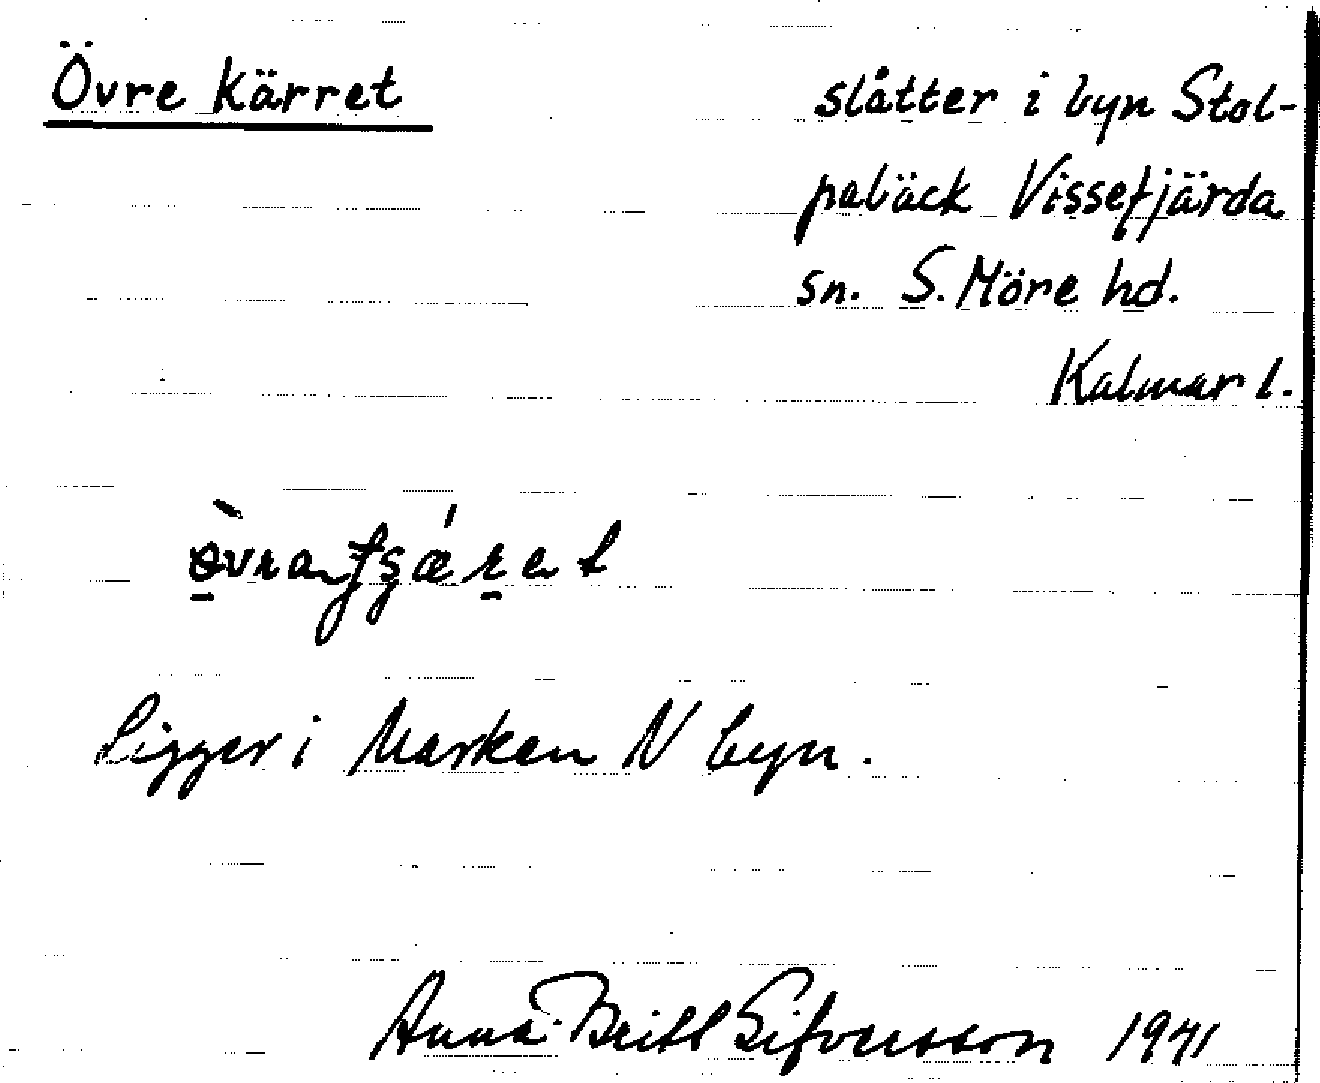 Övre kärret
slåtter i byn Stol-
paläck Vissefjärda
sn. S. Möre hd.
Kalmar l.
Ligger i Marken N byn.
Anna-Britt Sifversson 1941